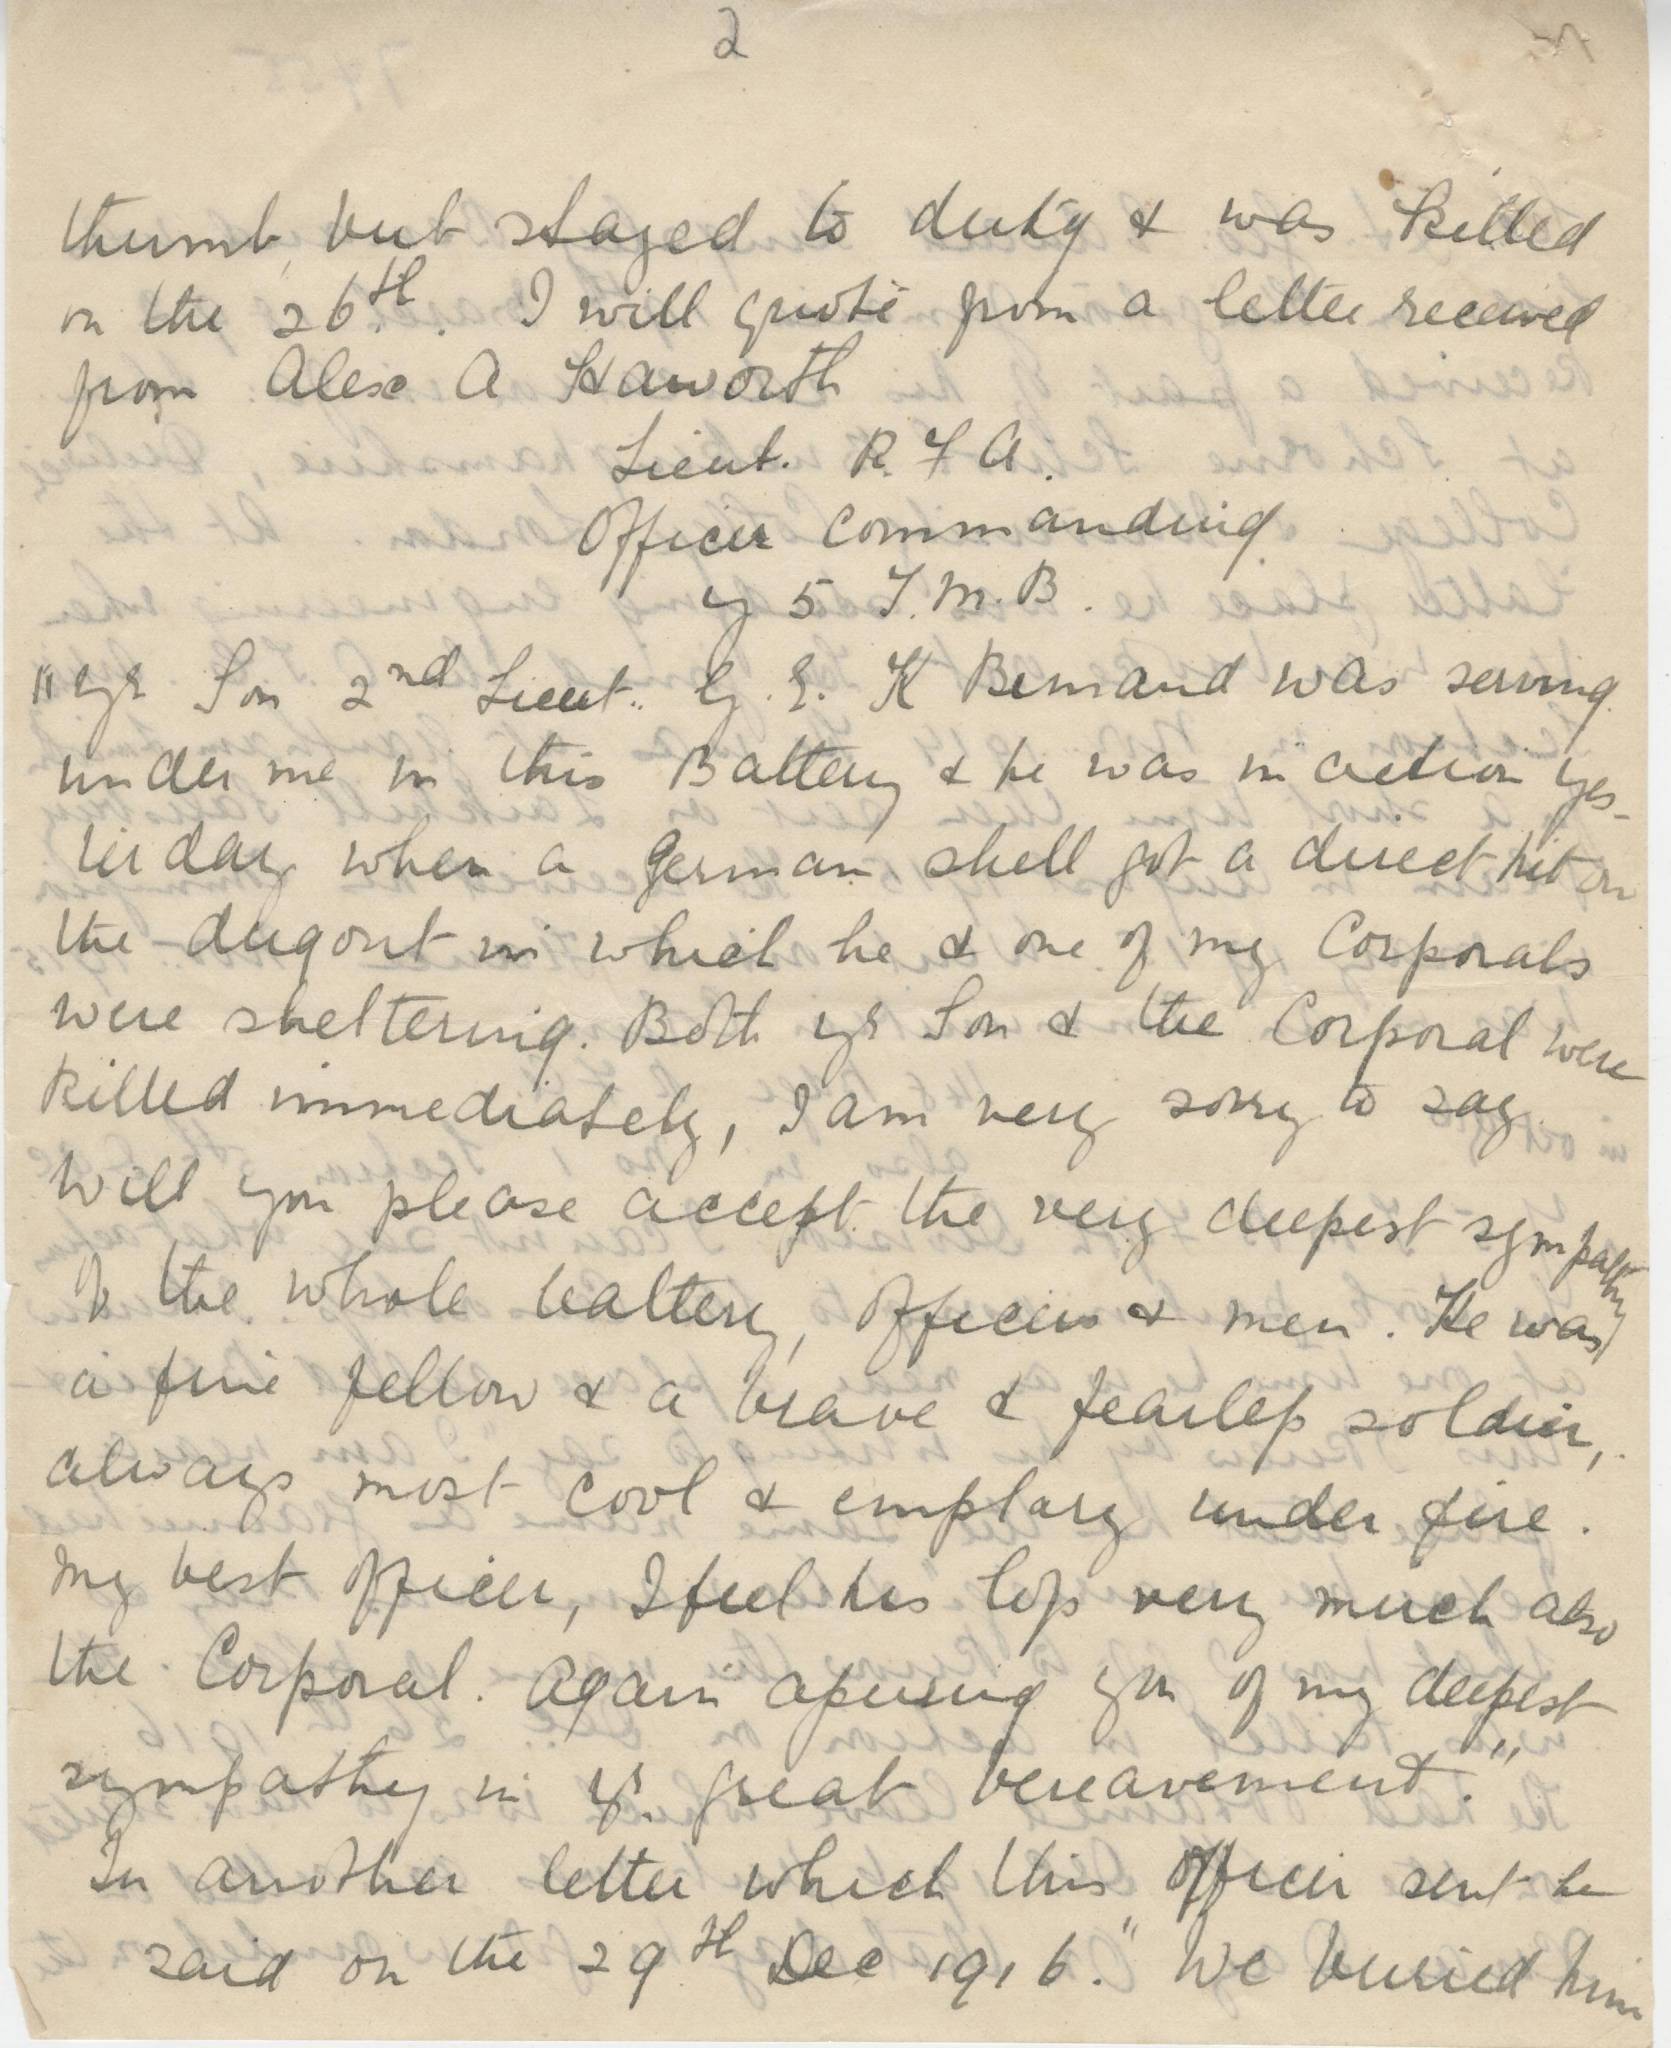 2
thumb, but stayed to duty & was killed
on the 26th. I will quote from a letter received
from Alex A Haworth
Lieut. R. F A.
Officer Commanding
Y 5 T. M. B.
"Yr Son 2nd Lieut. G. E. K Bemand was serving
under me in this Battery & he was in action yes-
terday when a German shell got a direct hit on
the dugout in which he & one of my Corporals
were sheltering. Both yr Son & the Corporal were
killed immediately, I am very sorry to say.
Will you please accept the very deepest sympathy
of the whole battery, Officers & men. He was
a fine fellow & a brave & fearless soldier,
always most cool & emplary under fire.
My best officer, I feel his loss very much also
the Corporal. Again assuring you of my deepest
sympathy in yr. great bereavement."
In another letter which this officer sent he
said on the 29th Dec 1916. "We buried him